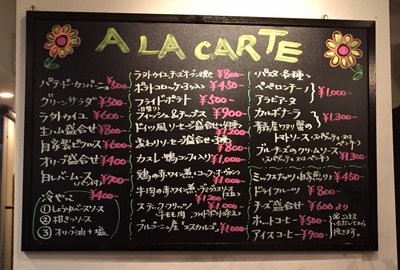 A LA CARTE
パテ・ド・カンパーニュ ¥500
グリーンサラダ ¥500
ラタトゥイユ ¥600
生ハム盛合せ ¥800
自家製ピクルス ¥600
オリーブ盛合せ ¥400
白レバームース ¥700
冷やっこ ¥400
① しょうゆベースソース
② 梅きりソース
③ オリーブ油+塩
ラタトゥイユ、チーズオーブン焼 ¥800
ポテトコロッケ ¥450
フライドポテト ¥500
フィッシュ&チップス ¥900
ドイツ風ソーセージ盛合せ
¥1,200
変わりソーセージ盛合せ
¥800
カスレ・鴨コンフィ入り ¥1,000
鶏の赤ワイン煮
¥1,000
牛肉の赤ワイン煮
¥1,200
¥1,000
ブルゴーニュ産エスカルゴ ¥1,000
パスタ各種
ペペロンチーノ
アラビアータ
¥1,000
カルボナーラ
¥1,300
トマトソース
ブルーチーズのクリームソース
¥1,300
ミックスナッツ ¥450
ドライフルーツ ¥800
チーズ盛合せ ¥600より
ホットコーヒー ¥500
アイスコーヒー ¥700